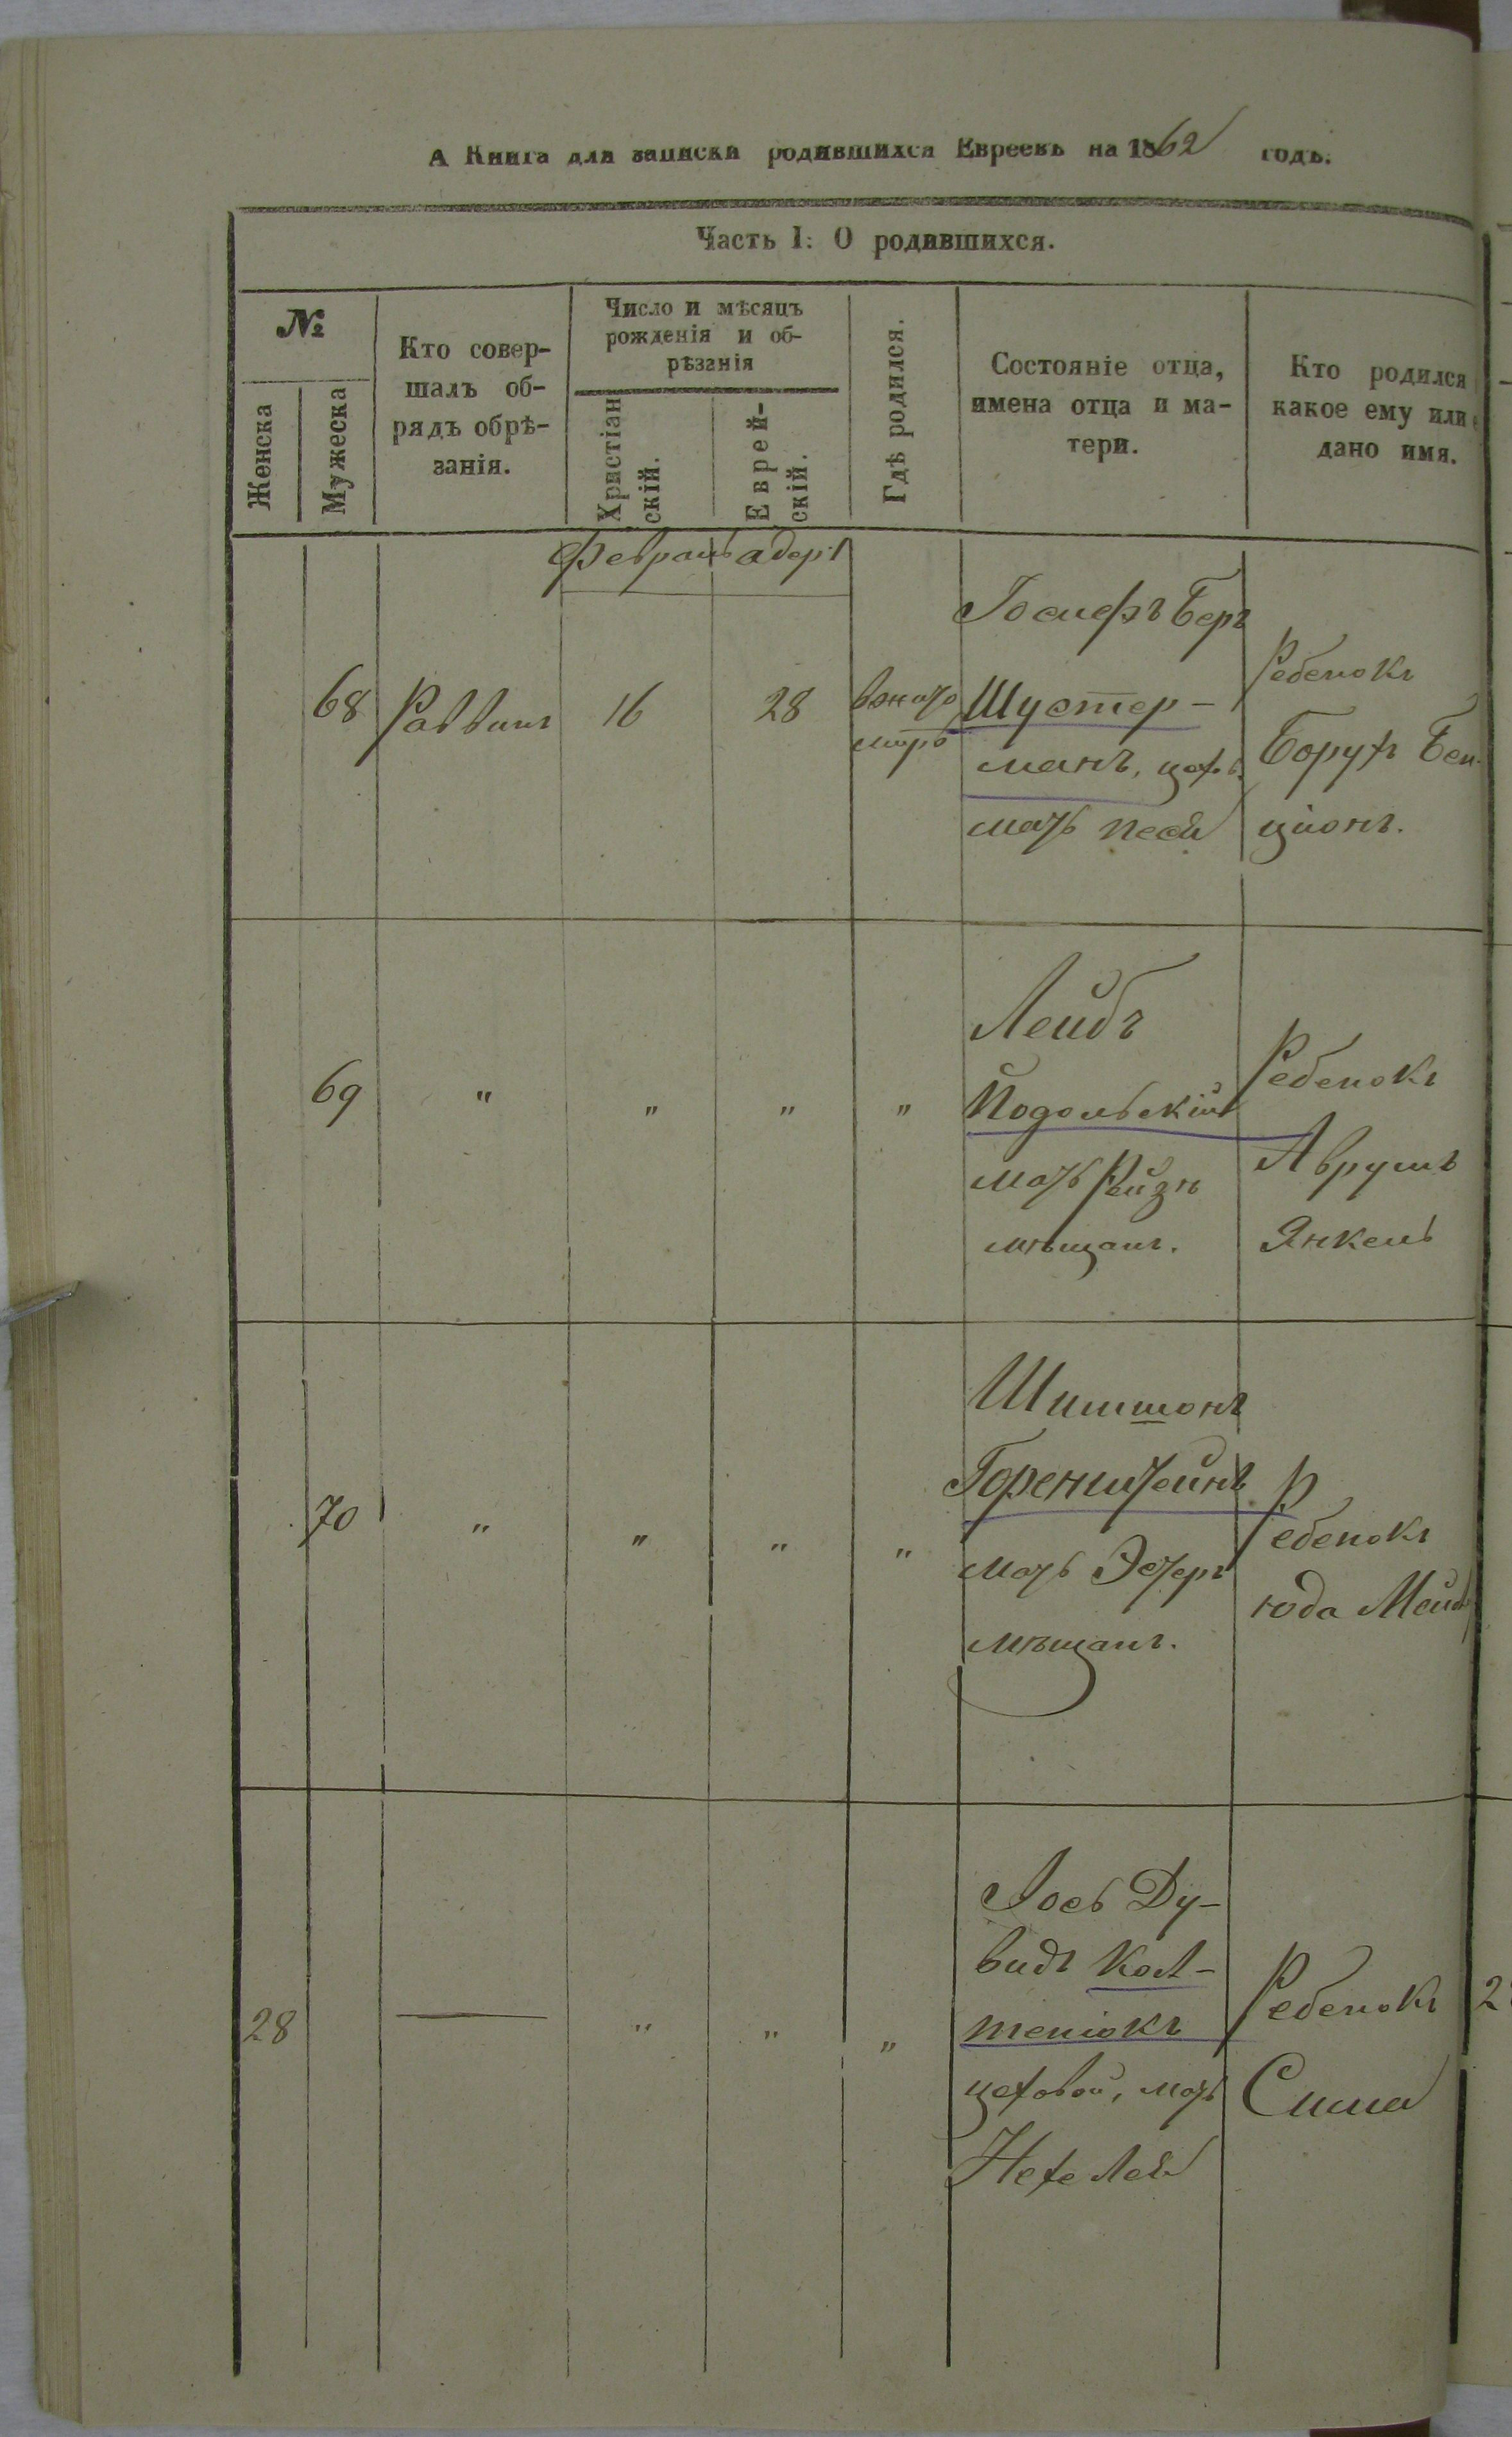 А Книга для записки родившихся Евреевъ на 1862 годъ.
Часть I: О родившихся.
№
Женска
Мужеска
Кто совер-
шалъ об-
рядъ обрѣ-
занія.
Число и мѣсяцъ
рожденія и об-
рѣзанія
Христіан
скій.
Еврей-
скій.
Гдѣ родился.
Состояніе отца,
имена отца и ма-
тери.
Кто родился
какое ему или
дано имя.
Февраль адер 1
68
Раввинъ
16
28
Іосифъ Беръ
Шустер-
манъ, цех.
мать Песя
Ребенокъ
Борухъ Бен-
ціонъ.
69
"
"
"
"
Лейбъ
Подольскій
мать Рейзя
мѣщанъ.
Ребенокъ
Аврумъ
Янкель
70
"
"
"
"
Шимшонъ
Горенштейнъ
мать Эстеръ
мѣщанъ.
Ребенокъ
Юда Мейер
28
—
"
"
"
Іось Ду-
видъ Кол-
теніокъ
цеховой, мать
Нехе Лея
Ребенокъ
Сима
2